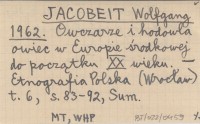 JACOBEIT Wolfgang
1962. Owczarze i hodowla
owiec w Europie środkowej
do początku XX wieku. –
Etnografia Polska (Wrocław)
t. 6, s. 83-92, Sum.
MT, WHP